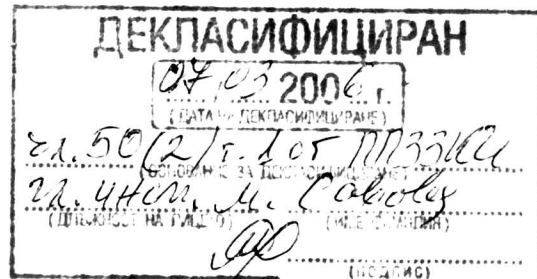 ДЕКЛАСИФИЦИРАН
07.03 2006 г.
(ДАТА НА ДЕКЛАСИФИЦИРАНЕ)
чл. 50(2) т. 1 от ППЗЗКИ
(ОСНОВАНИЕ ЗА ДЕКЛАСИФИЦИРАНЕТО)
гл. инсп. М.
(ДЛЪЖНОСТ НА ЛИЦЕТО) (ИМЕ, ФАМИЛИЯ)
(ПОДПИС)